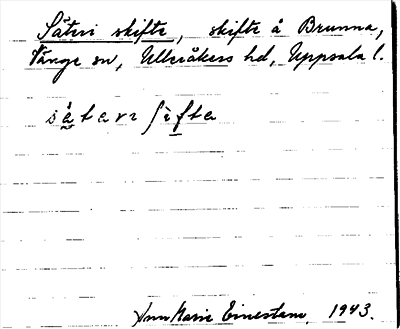 Sätui skifte, skifte å Brunna,
Vänge sn, Ulleråkers hd, Uppsala l.
sä̀tavi ʃìfta
Ann Marie Einestam, 1943.